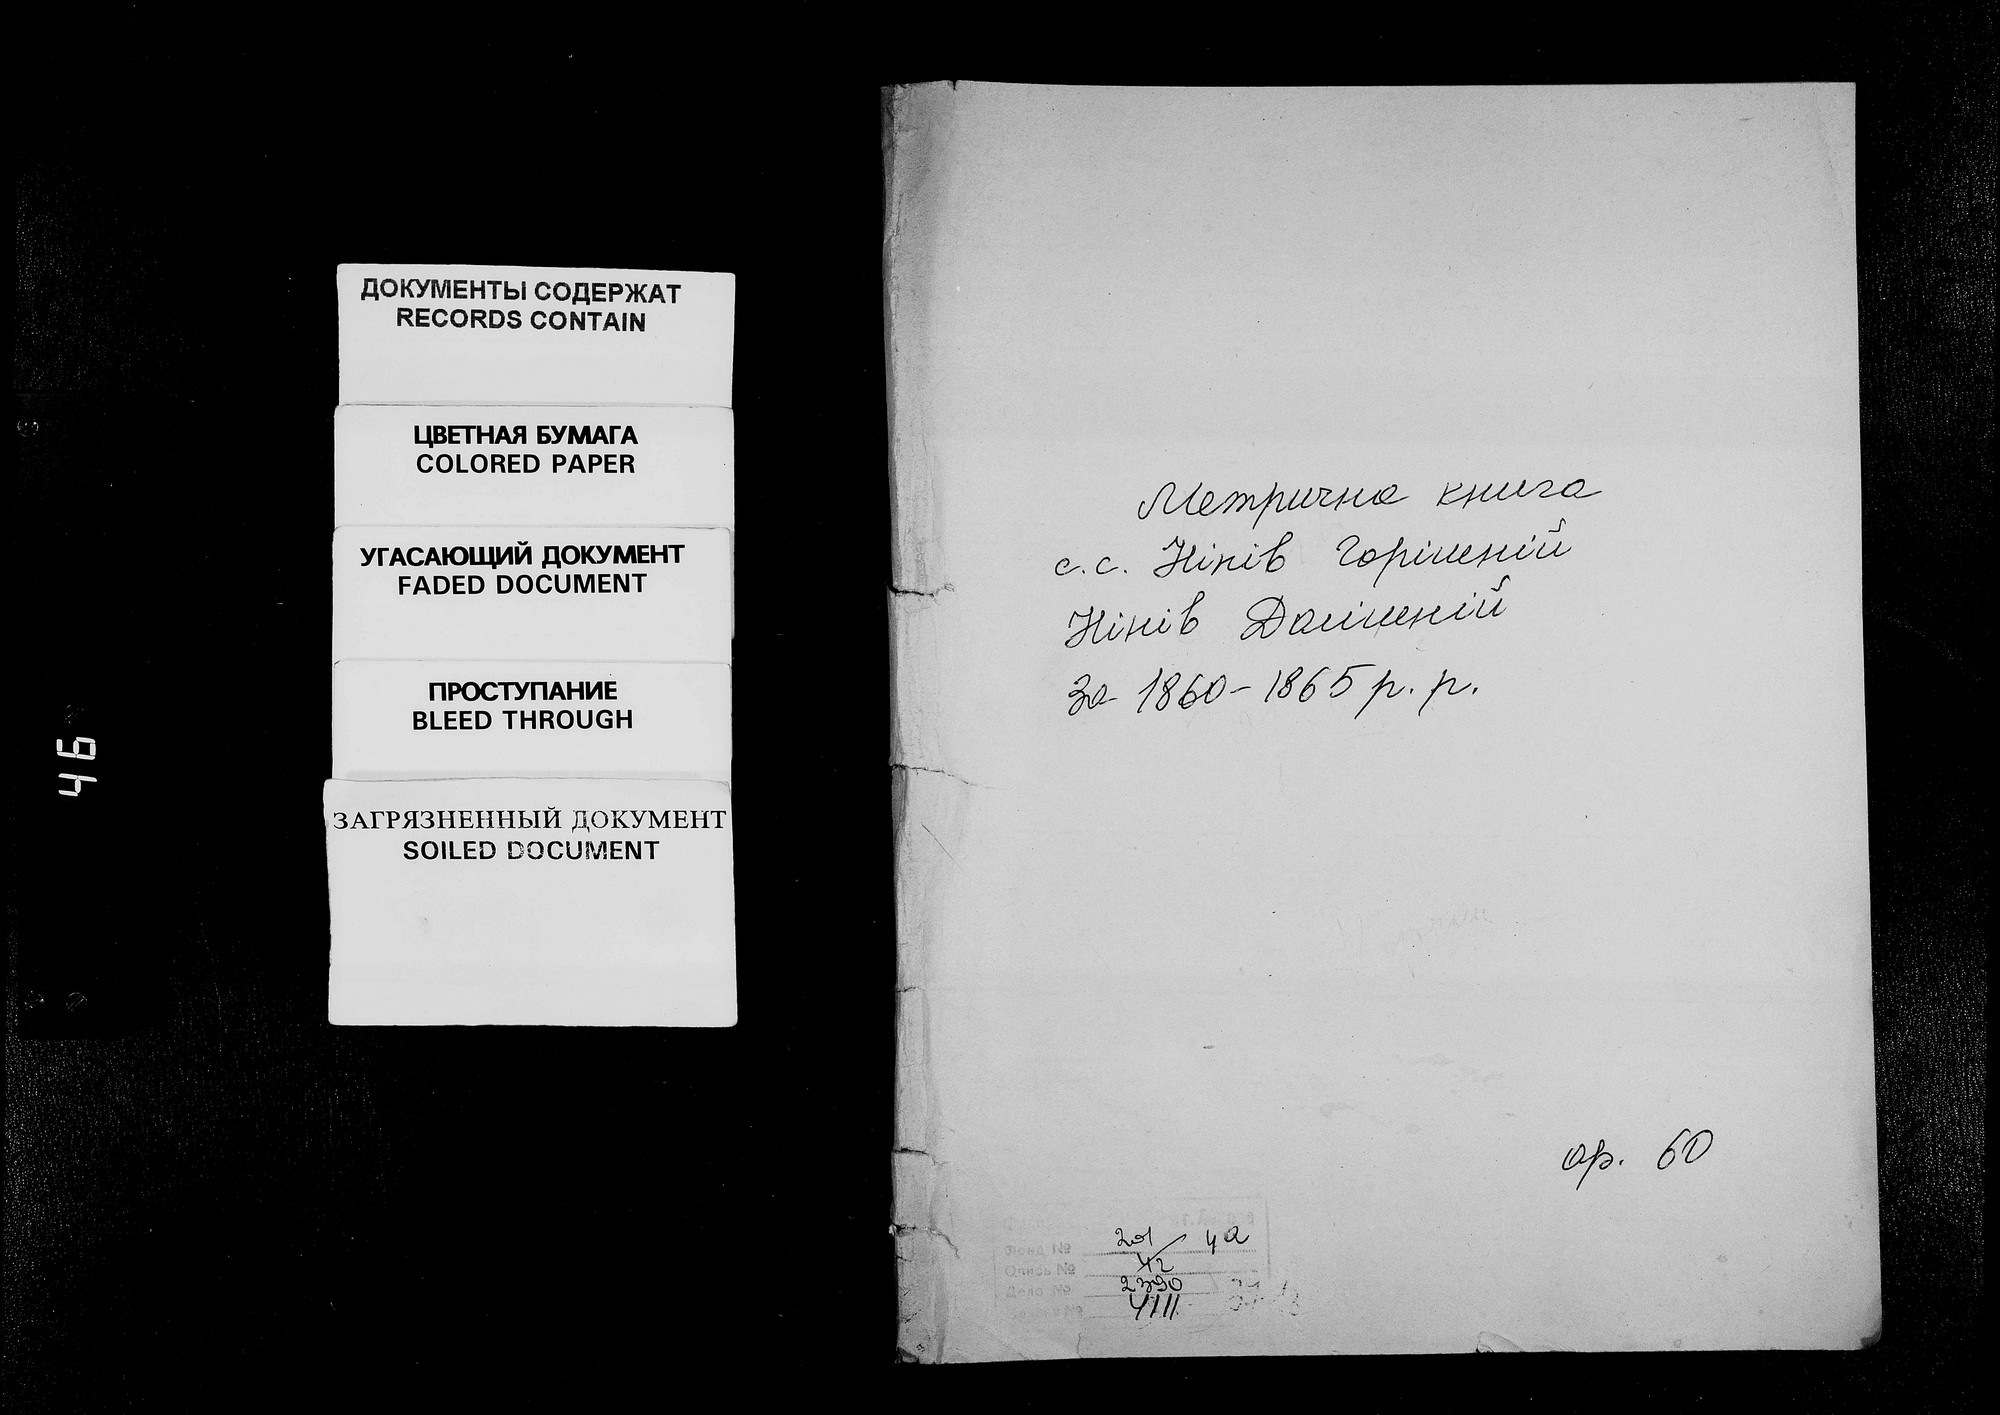 ДОКУМЕНТЫ СОДЕРЖАТ
RECORDS CONTAIN
ЦВЕТНАЯ БУМАГА
COLORED PAPER
УГАСАЮЩИЙ ДОКУМЕНТ
FADED DOCUMENT
ПРОСТУПАНИЕ
BLEED THROUGH
ЗАГРЯЗНЕННЫЙ ДОКУМЕНТ
SOILED DOCUMENT
46
Метрична книга
с.с. Нінів Горішній
Нінів Долішній
За 1860-1865 р. р.
ар. 60
Фонд № 201 4а
Опись № 42
Дело № 2390